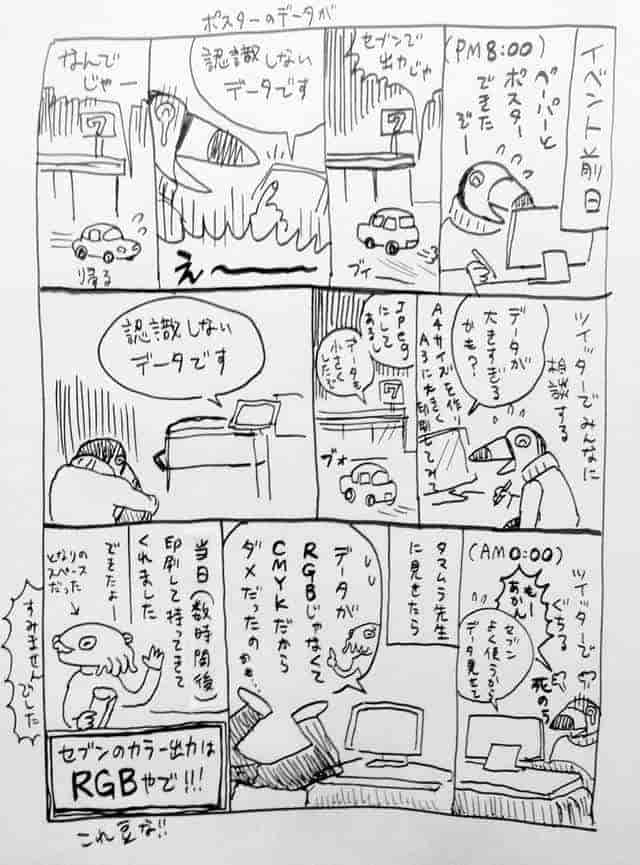 ポスターのデータが
イベント前日
(PM8:00)
ペーパーと
ポスター
できた
ぞー
セブンで
出力じゃ
7
ブィ
認識しない
データです
え〜
なんで
じゃー
7
帰る
ツイッターでみんなに
相談する
データが
大きすぎる
かも?
A4サイズを作り
A3に大きく
印刷してみて
Jpeg
にして
あるし
データも
小さく
したで
7
ブォ
認識しない
データです
(AM0:00)
ツイッターで
ぐちる
もー
あかん
死のう
セブン
よく使うから
データ見せて
タマムラ先生
に見せたら
データが
RGBじゃなくて
CMYKだから
ダメだったの
かも…
当日(数時間後)
印刷して持ってきて
くれました
できたよー
となりの
スペース
だった
すみませんでした
セブンのカラー出力は
RGBやで!!!
これ豆な!!